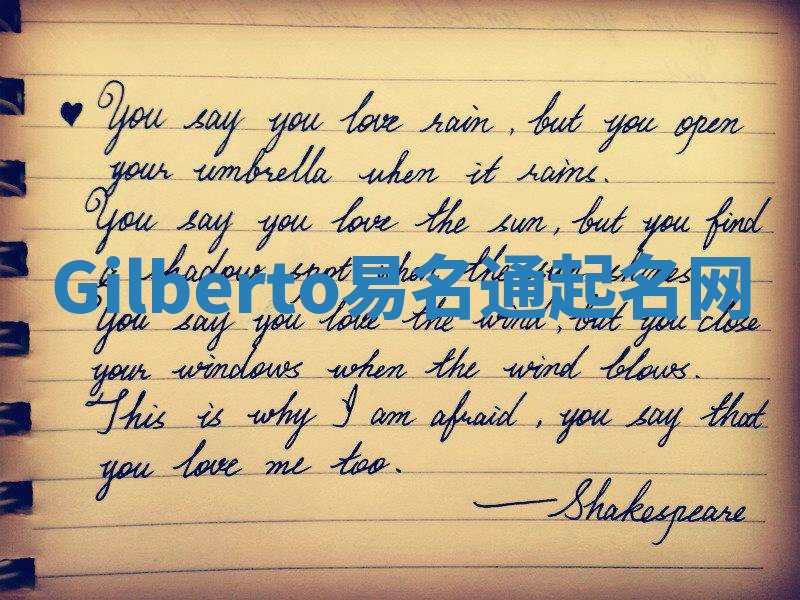 ♥ You say you love rain, but you open
your umbrella when it rains.
You say you love the sun, but you find
a shadow spot when the sun shines.
Gilberto易名通起名网
You say you love the wind, but you close
your windows when the wind blows.
This is why I am afraid, you say that
you love me too.
—Shakespeare